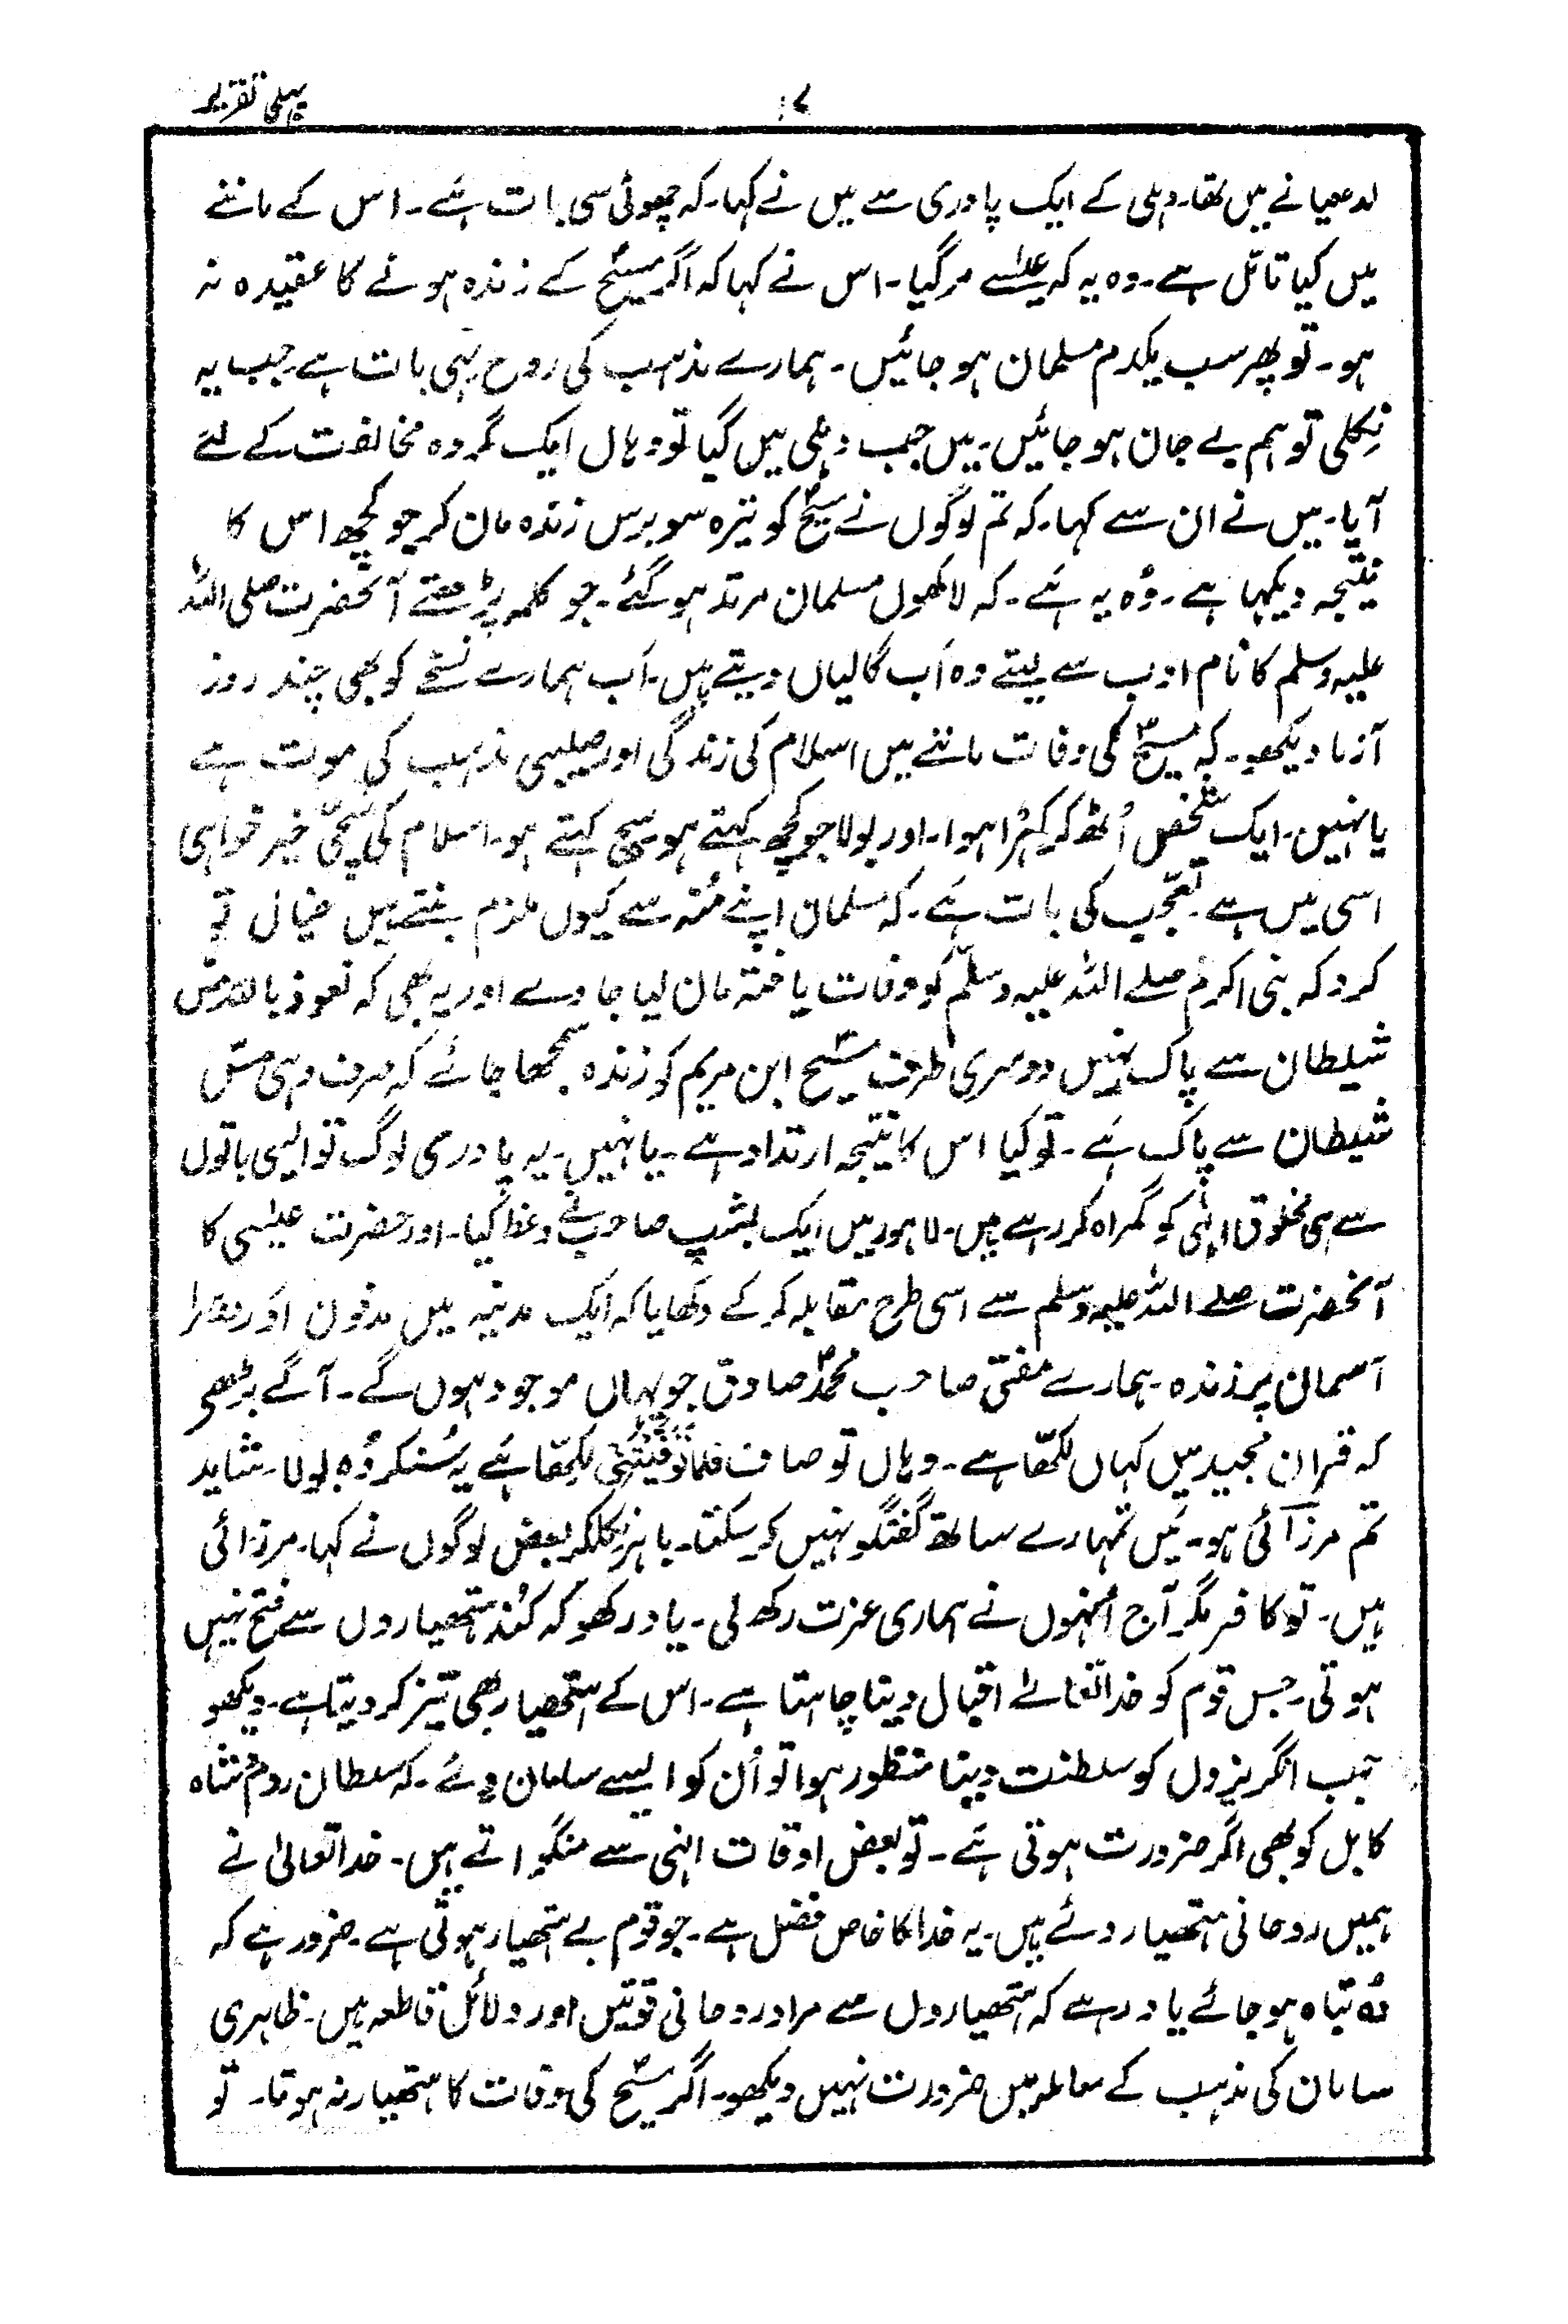 پہلی تقریر
۱۷
لدھیانے میں تھا۔ دہلی کے ایک پادری سے میں نے کہا۔ کہ چھوٹی سی بات ہے۔ اس کے ماننے
میں کیا تأمل ہے۔ وہ یہ کہ عیسٰے مر گیا۔ اس نے کہا کہ اگر مسیحؑ کے زندہ ہونے کا عقیدہ نہ
ہو۔ تو پھر سب یکدم مسلمان ہو جائیں۔ ہمارے مذہب کی روح یہی بات ہے۔ جب یہ
نِکلی تو ہم بے جان ہو جائیں۔ میں جب دہلی میں گیا تو وہاں ایک گروہ مخالفت کے لئے
آیا۔ میں نے ان سے کہا۔ کہ تم لوگوں نے مسیحؑ کو تیرہ سو برس زندہ مان کر جو کچھ اس کا
نتیجہ دیکہا ہے۔ وُہ یہ ہَے۔ کہ لاکھوں مسلمان مرتد ہو گئے۔ جو کلمہ پڑھتے آنحضرت صلی اللہ
علیہ وسلم کا نام ادب سے لیتے وہ اَب گالیاں دیتے ہیں۔ اَب ہمارے نسخے کو بھی چند روز
آزما دیکھو۔ کہ مسیحؑ کی وفات ماننے میں اسلام کی زندگی اور صلیبی مذہب کی موت ہے
یا نہیں۔ ایک شخص اُٹھ کر کہڑا ہوا۔ اور بولا جو کچھ کہتے ہو سچ کہتے ہو۔ اسلام کی سچّی خیر خواہی
اسی میں ہے۔ تعجّب کی بات ہَے۔ کہ مسلمان اپنے مُنہ سے کیوں ملزم بنتے ہیں خیال تو
کرو کہ نبی اکرمؐ صلے اللہ علیہ وسلّم کو وفات یافتہ مان لیا جاوے اور یہ بھی کہ نعوذ باللہ مسّ
شیطان سے پاک نہیں دوسری طرف مسیحؑ ابن مریم کو زندہ سمجھا جائے کہ صرف وہی مسّ
شیطان سے پاک ہَے۔ تو کیا اس کا نتیجہ ارتداد ہے۔ یا نہیں۔ یہ پادری لوگ تو ایسی باتوں
سے ہی مخلوق الٰہی کو گمراہ کر رہے ہیں۔ لاہور میں ایک بشپ صاحب نے وعظ کیا۔ اور حضرت عیسٰی کا
آنحضرت صلے اللہ علیہ وسلم سے اسی طرح مقابلہ کر کے دکھایا کہ ایک مدینہ میں مدفون اور دوسرا
آسمان پر زندہ۔ ہمارے مفتی صاحب محمدؐ صادق جو یہاں موجود ہوں گے۔ آگے بڑھے
کہ قرآن مجید میں کہاں لکھّا ہے۔ وہاں تو صاف فلمّا توفّیتنی لکھّا ہَے یہ سُنکر وُہ بولا۔ شاید
تم مرزآئی ہو۔ مَیں تمہارے ساتھ گفتگو نہیں کر سکتا۔ باہر نکلکر بعض لوگوں نے کہا۔ مرزائی
ہیں۔ تو کافر مگر آج اُنہوں نے ہماری عزت رکھ لی۔ یاد رکھو کہ کُند ہتھیاروں سے فتح نہیں
ہوتی۔ جس قوم کو خدا تعالےٰ اقبال دینا چاہتا ہے۔ اس کے ہتھیار بھی تیز کر دیتا ہے۔ دیکھو
جب انگریزوں کو سلطنت دینا منظور ہوا تو اُن کو ایسے سامان دِئے۔ کہ سلطان روم و شاہ
کابل کو بھی اگر ضرورت ہوتی ہَے۔ تو بعض اوقات انہی سے منگواتے ہیں۔ خدا تعالیٰ نے
ہمیں روحانی ہتھیار دئے ہیں۔ یہ خدا کا خاص فضل ہے۔ جو قوم بے ہتھیار ہوتی ہے۔ ضرور ہے کہ
وُہ تباہ ہو جائے یاد رہے کہ ہتھیاروں سے مراد روحانی قوّتیں اور دلائل قاطعہ ہیں۔ ظاہری
سامان کی مذہب کے معاملہ میں ضرورت نہیں دیکھو۔ اگر مسیحؑ کی وفات کا ہتھیار نہ ہوتا۔ تو